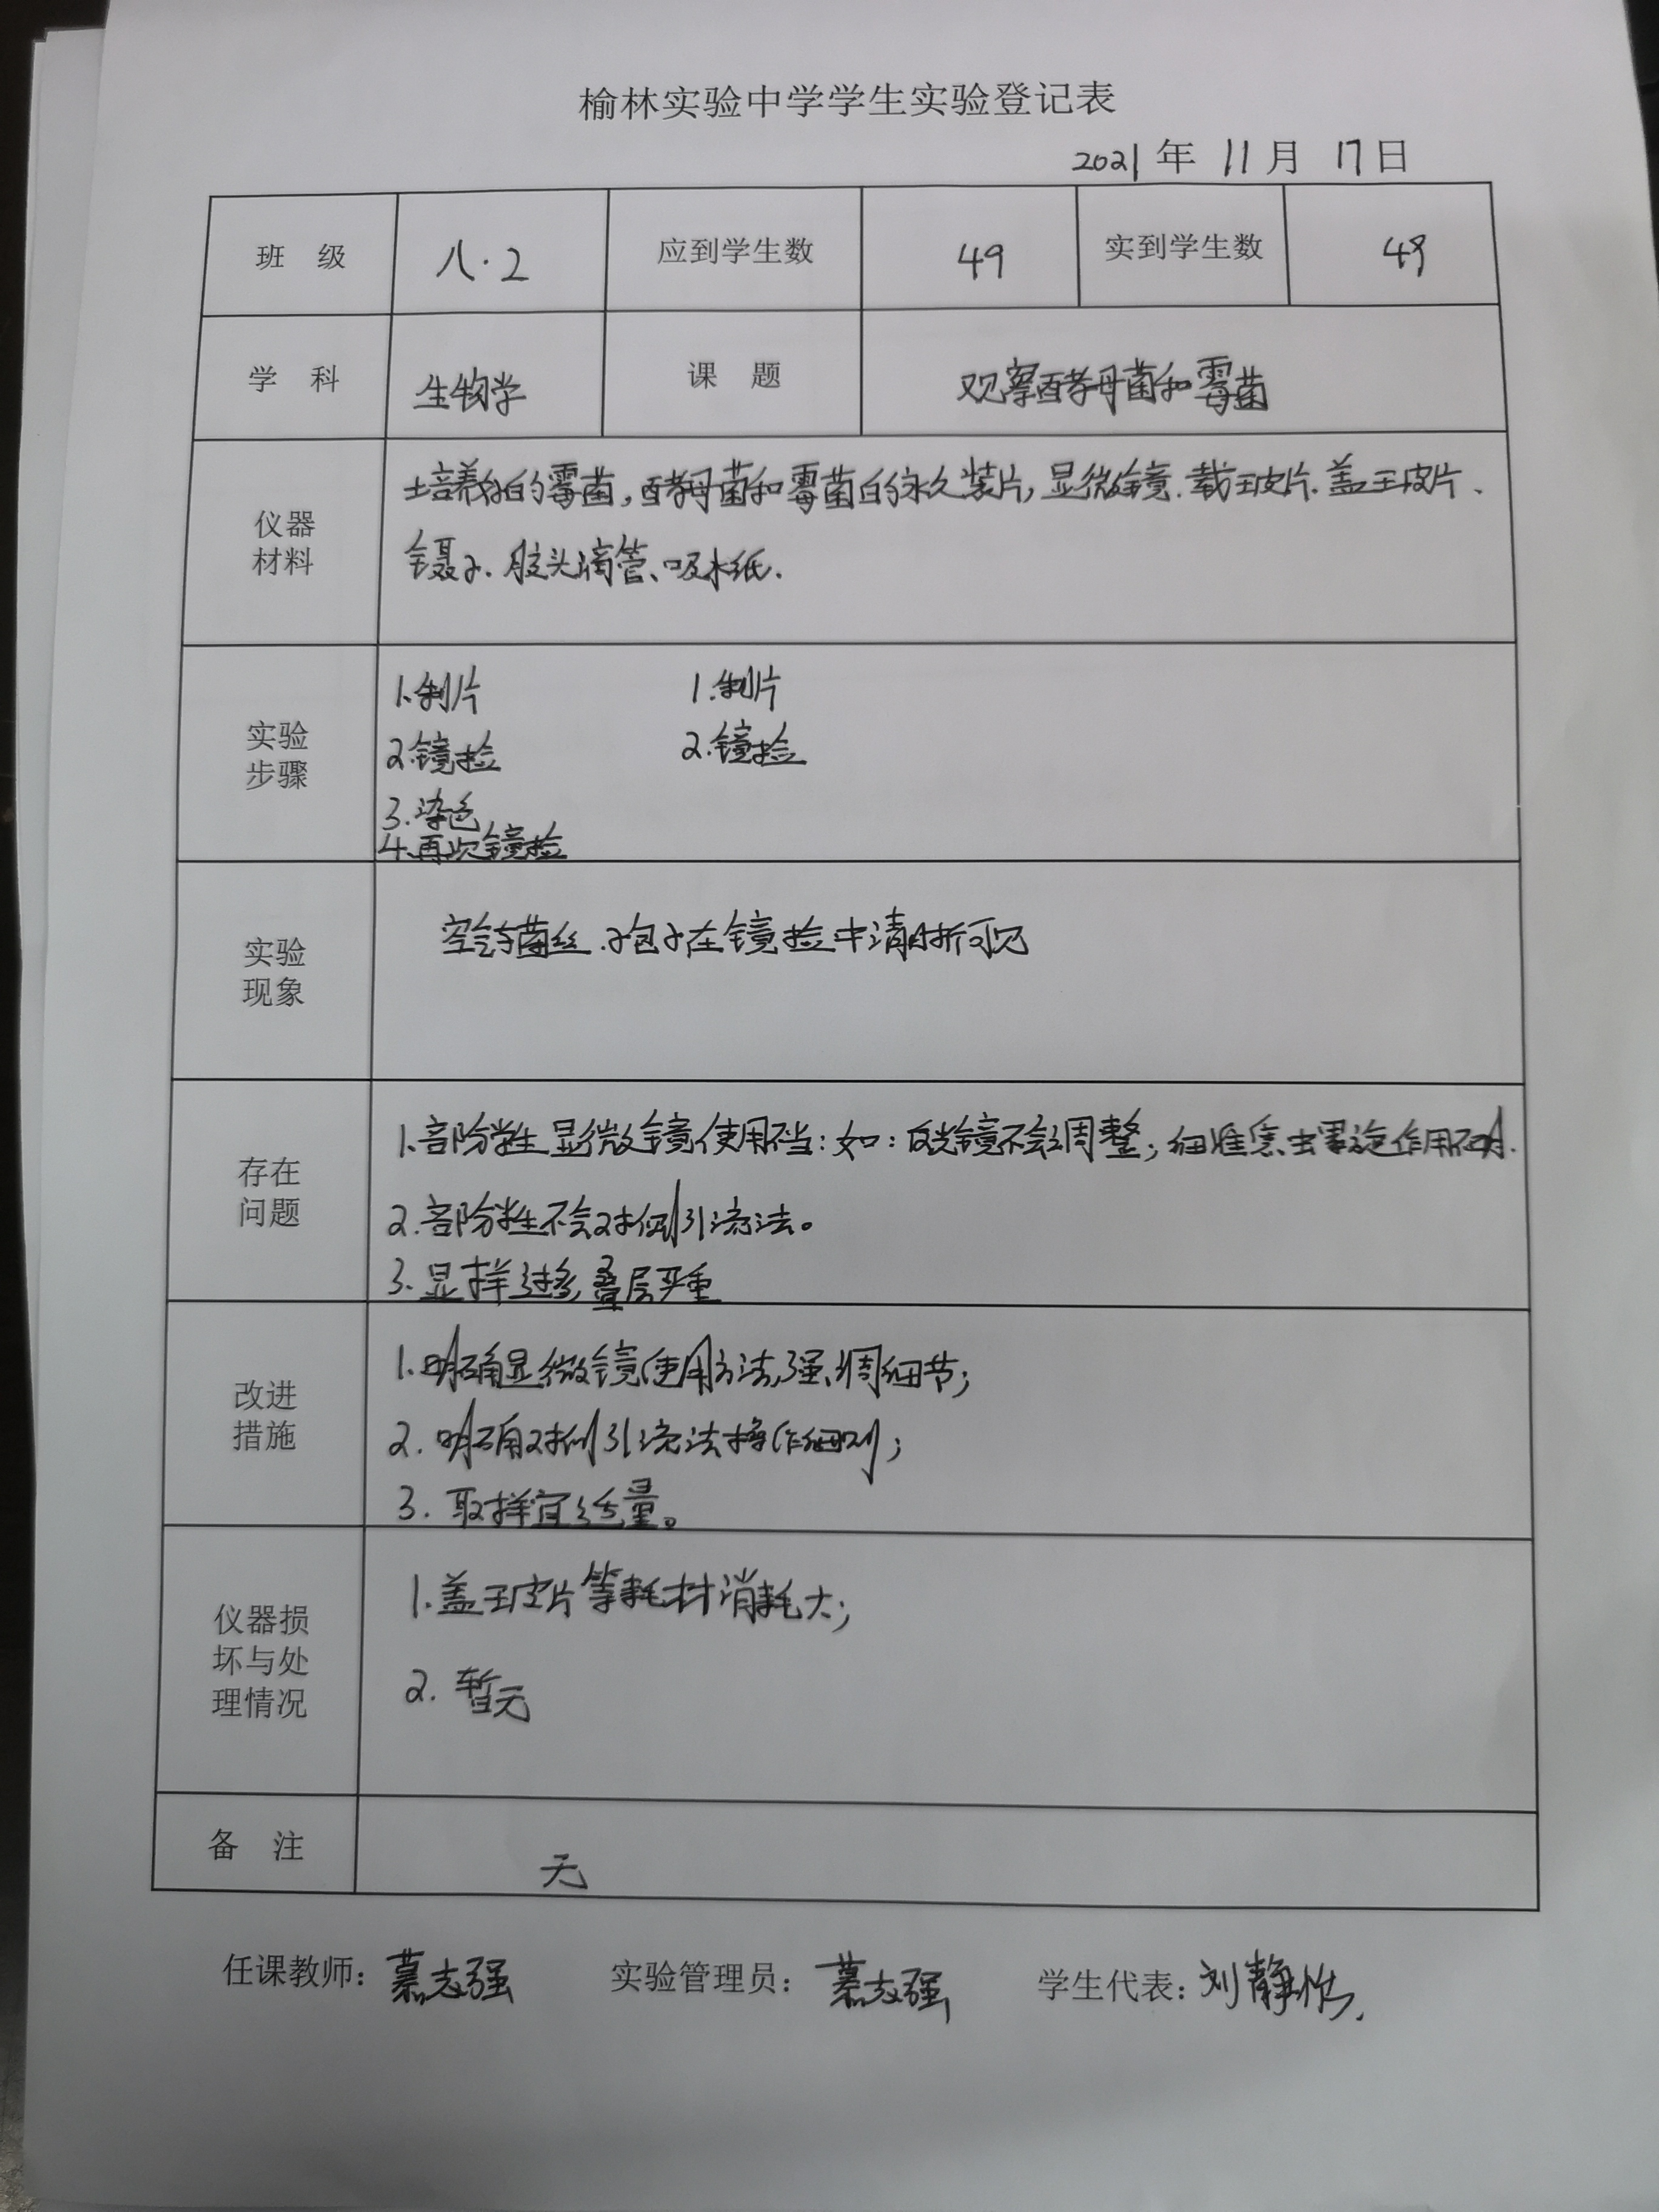 榆林实验中学学生实验登记表
2021 年 11 月 17 日
班 级 八·2 应到学生数 49 实到学生数 49
学 科 生物学 课 题 观察酵母菌和霉菌
仪器材料
培养的霉菌,酵母菌和霉菌的永久装片,显微镜.载玻片.盖玻片、
镊子.胶头滴管、吸水纸.
实验步骤
1.制片 1.制片
2.镜检 2.镜检
3.染色
4.再次镜检
实验现象
菌丝.孢子在镜检中清晰可见
存在问题
1.部份学生显微镜使用不当:如:反光镜不会调整;细准焦螺旋作用不明.
2.部份学生不会对侧引流法。
3.显样过多,叠层严重
改进措施
1.明确显微镜使用方法,强调细节;
2.明确对侧引流法操作细则;
3.取样宜适量。
仪器损坏与处理情况
1.盖玻片等耗材消耗大;
2.暂无
备 注 无
任课教师:慕志强 实验管理员:慕志强 学生代表:刘静怡